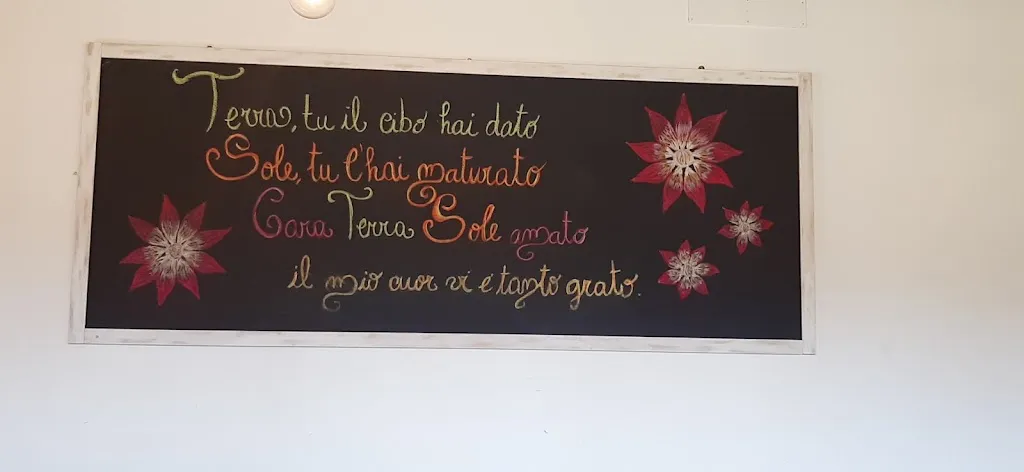 Terra, tu il cibo hai dato
Sole, tu l'hai maturato
Cara Terra Sole amato
il mio cuor vi é tanto grato.